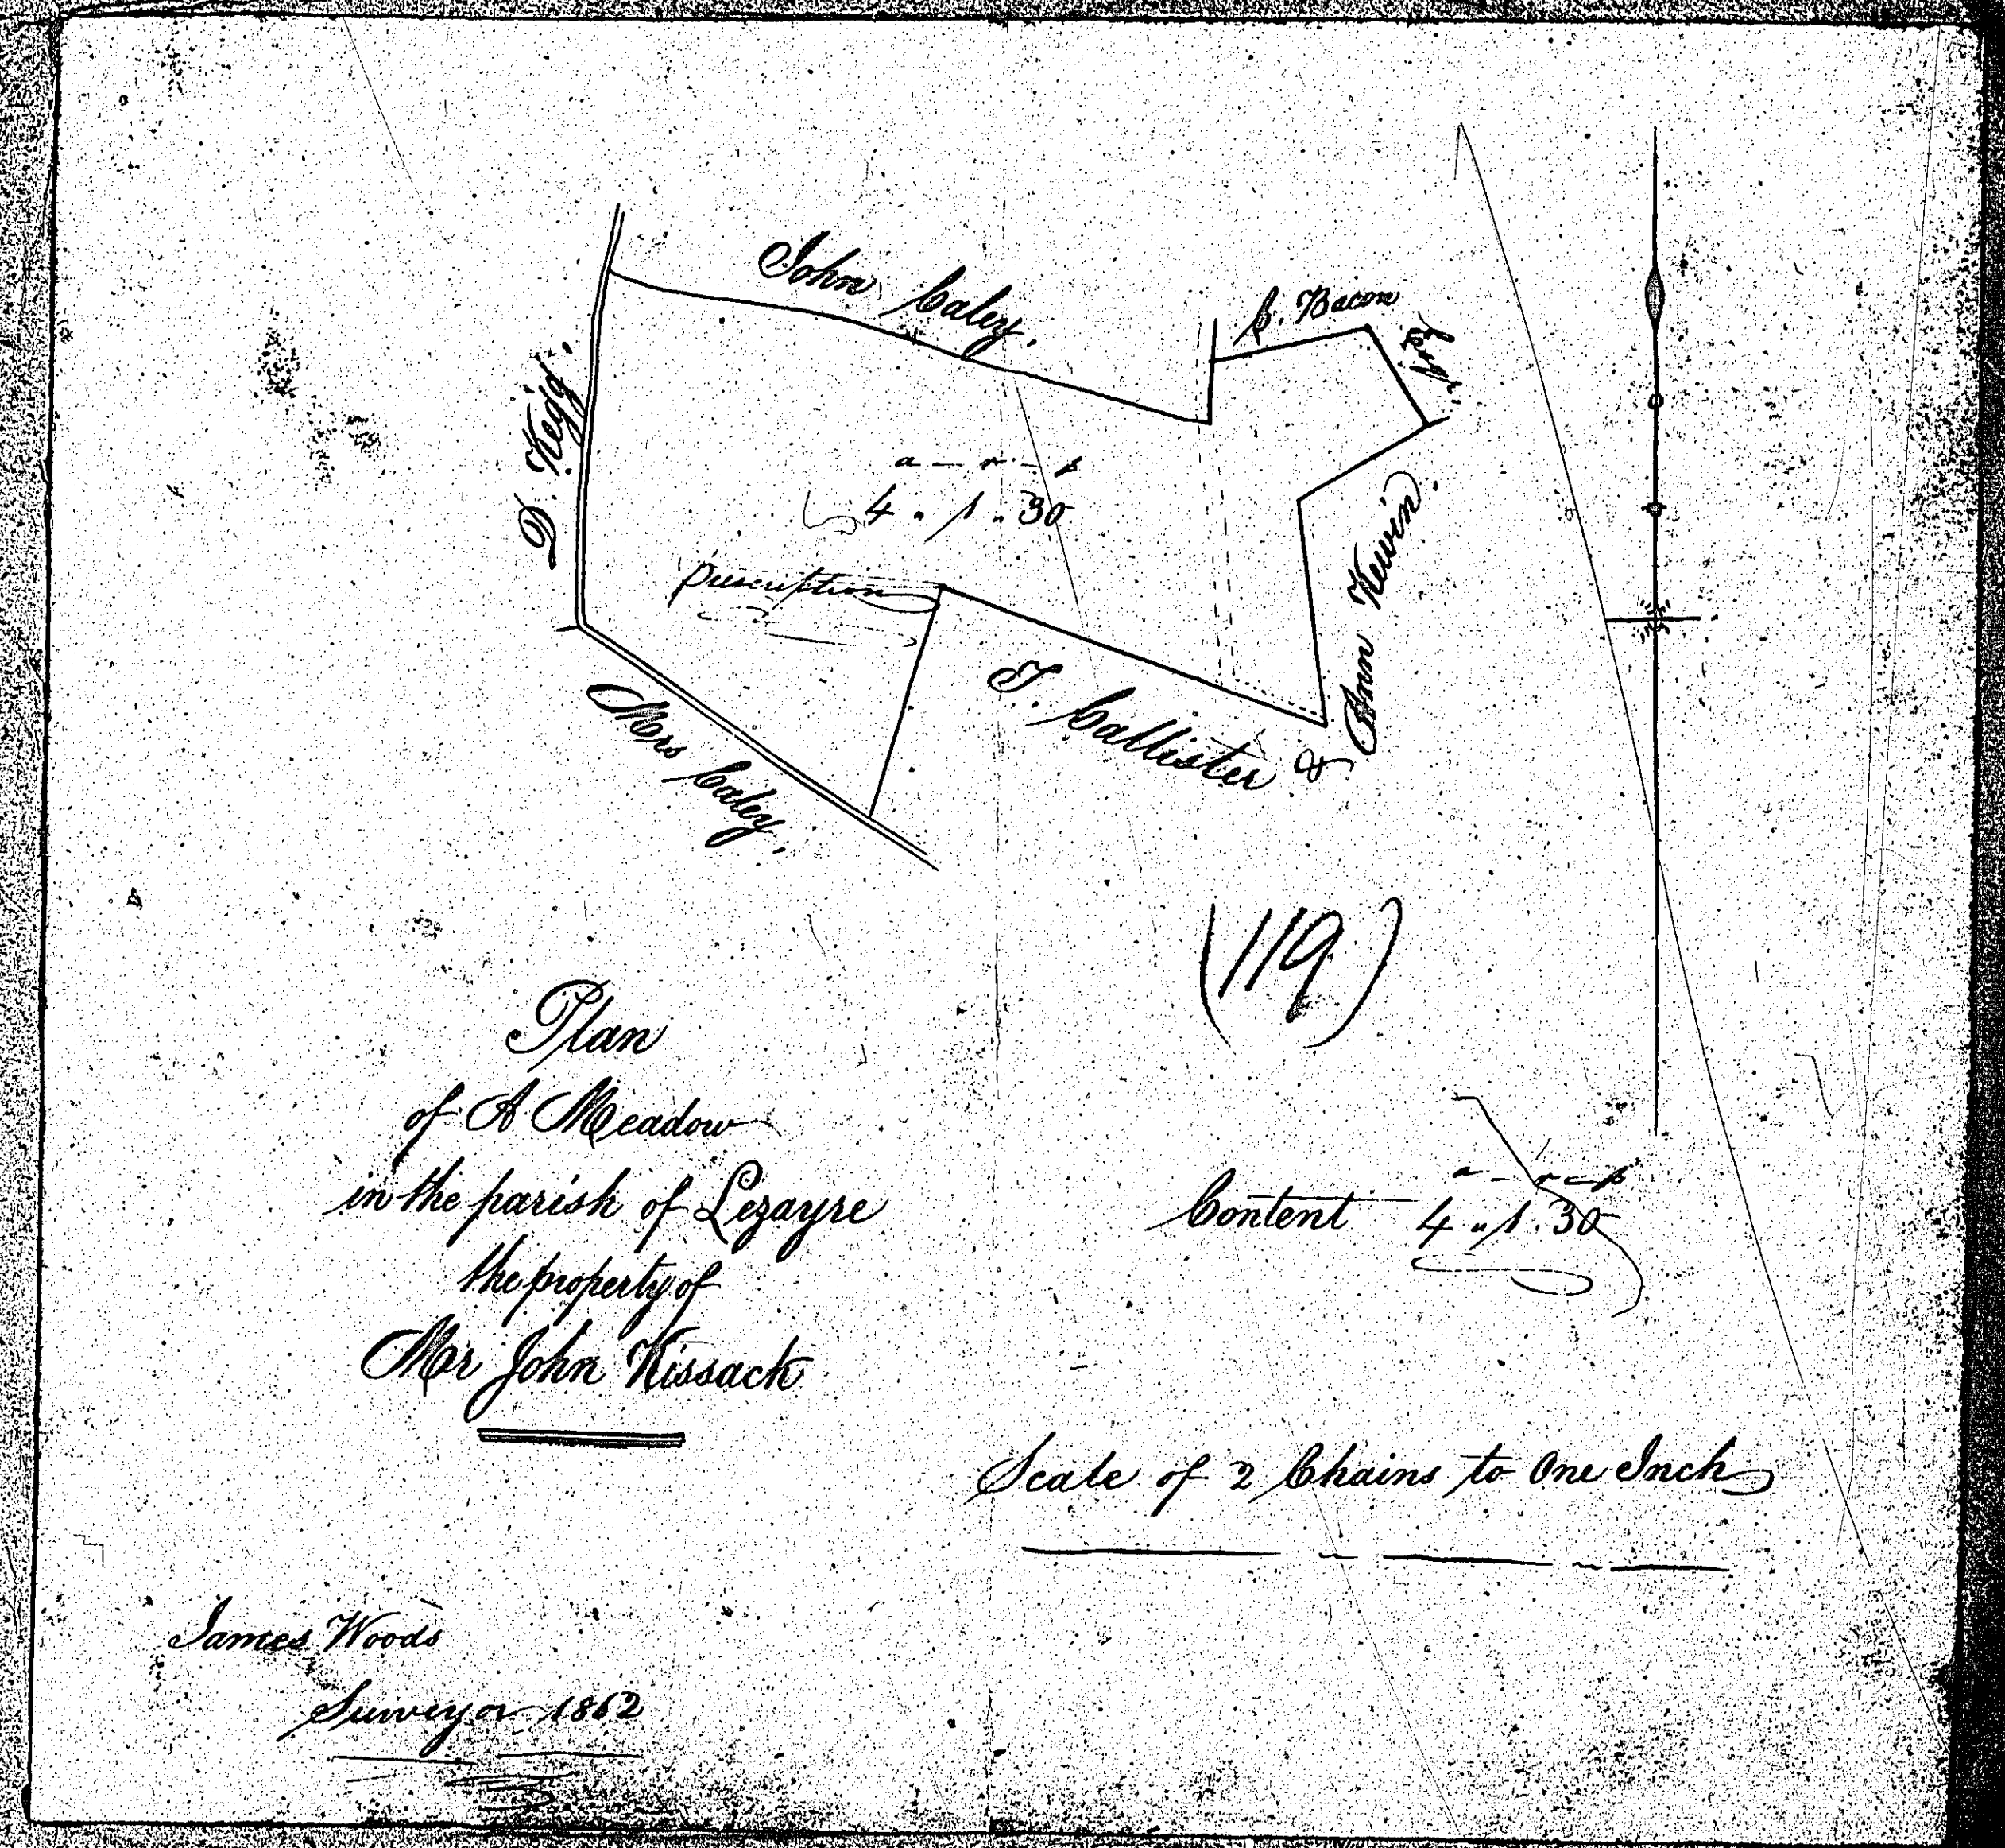 John Caley.
C. Bacon
D. Kegg.
a - r - p
4 " 1 " 30
prescription
Ann Kewin.
T. Callister &
Mrs Caley.
(119)
Plan
of A Meadow
in the parish of Lezayre
the property of
Mr John Kissack
a - r - p
Content 4 " 1 . 30
Scale of 2 Chains to One Inch
James Woods
Surveyor 1862